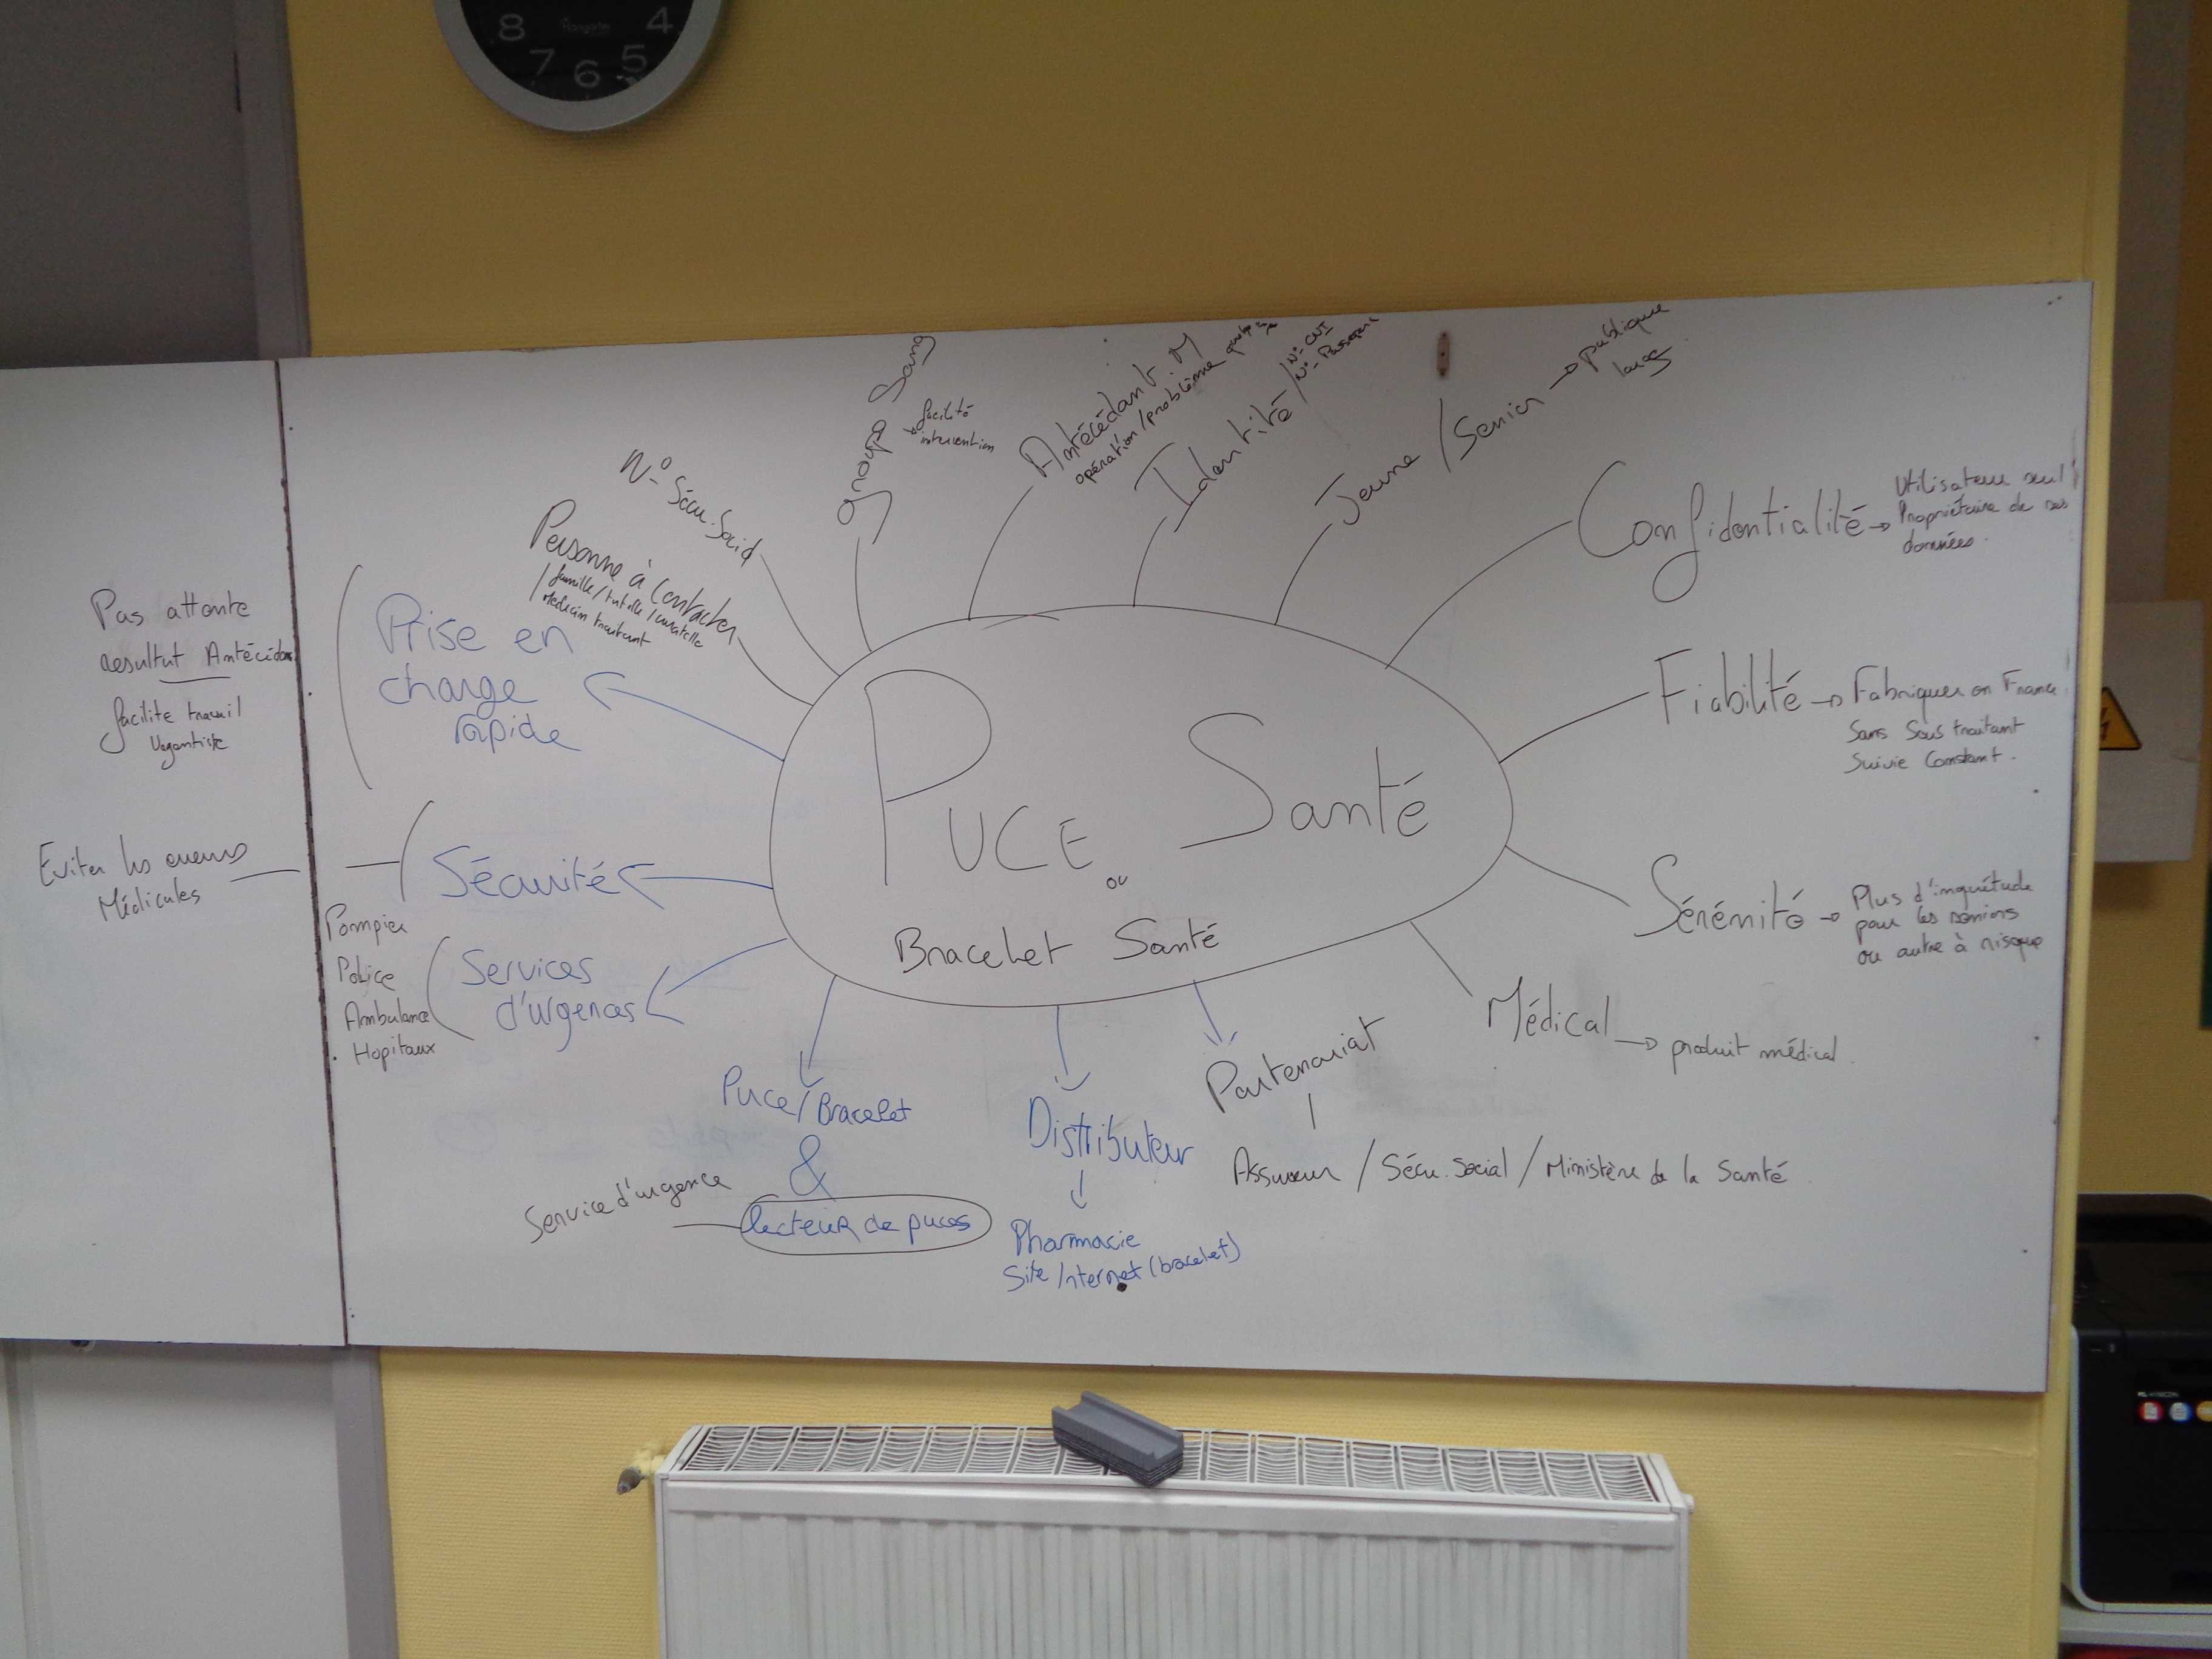 8
7
6
5
4
N° Sécu. Social
Personne à contacter
/ famille / tutelle / curatelle
Médecin traitant
groupe Sang
facilité
intervention
Antécédant. M
opération / problème
Idantité /
N° CNI
N° Passeport
Jeune / Senior → publique
large
Confidentialité →
Utilisateur seul
Propriétaire de ses
données.
Fiabilité → Fabriquer en France
Sans Sous traitant
Suivie Constant.
Sérénité → Plus d'inquiétude
pour les seniors
ou autre à risque
Médical → produit médical.
Partenariat
Assureur / Sécu. Social / Ministère de la Santé.
Distributeur
Pharmacie
Site Internet (bracelet)
Puce / Bracelet
&
lecteur de puces
Service d'urgence
Services
d'urgences
Pompier
Police
Ambulance
Hopitaux
Sécurité
Eviter les erreurs
Médicales
Prise en
charge
rapide
Pas attente
resultat
facilite travail
Urgentiste
PUCE Santé
ou
Bracelet Santé